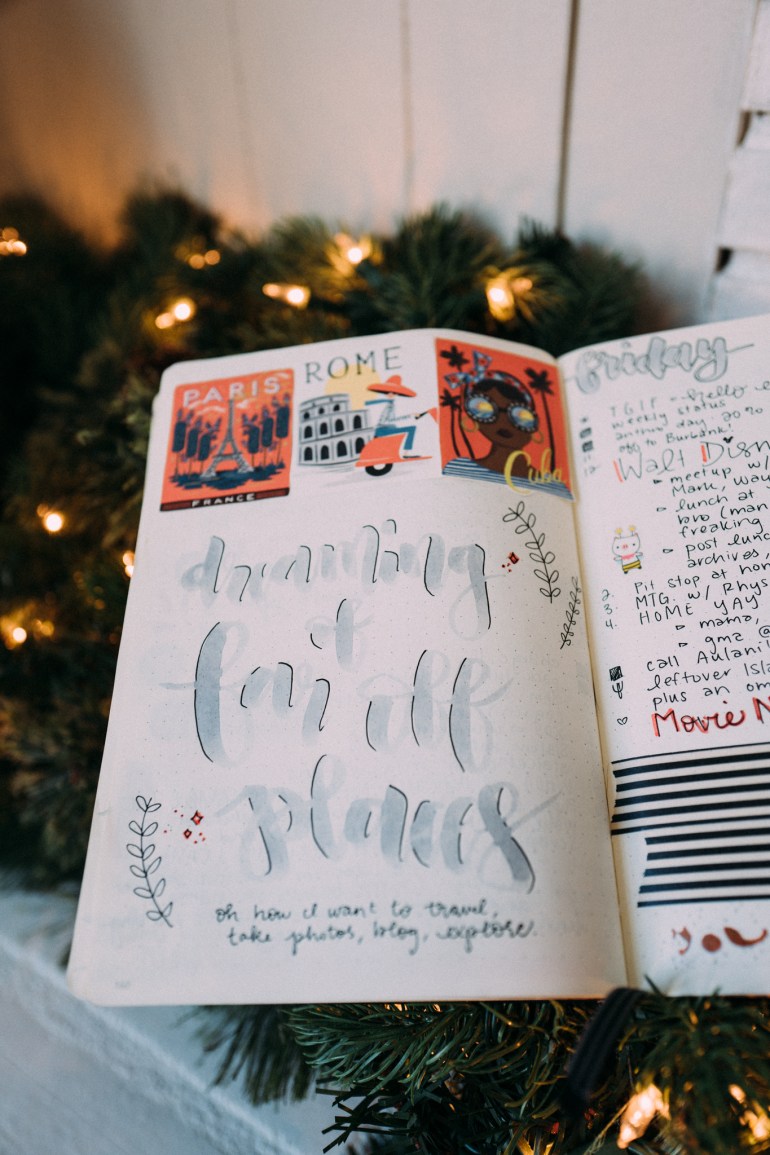 PARIS
FRANCE
ROME
Cuba
dreaming
of
far off
places
oh how I want to travel,
take photos, blog, explore.
friday
TGIF - hello
weekly status
another day
off to Burbank!
Walt Disn
meetup w/
Mark, way
lunch at
bro (man
freaking
post lunc
archives,
2. Pit stop at hom
3. MTG. w/ Rhys
4. HOME YAY
mama,
gma @
call Aulani
leftover Isla
plus an om
Movie N
you